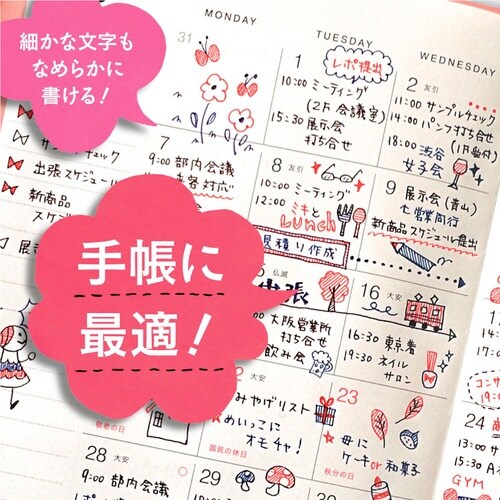 細かな文字も
なめらかに
書ける！
MONDAY
TUESDAY
WEDNESDAY
31
1
レポ提出
10:00 ミーティング
(2F 会議室)
15:30 展示会
打ち合せ
2 友引
11:00 サンプルチェック
14:00 パンフ打ち合せ
(1F 受付)
18:00 渋谷
女子会
出張スケジュール
新商品
7
9:00 部内会議
来客対応
8 友引
10:00 ミーティング
12:00 ミキと
Lunch
見積り作成
9
展示会(青山)
営業同行
新商品スケジュール提出
手帳に
最適！
仏滅
出張
大阪営業所
打ち合せ
飲み会
16 大安
16:30 東京着
19:30 ネイル
サロン
敬老の日
22 大安
みやげリスト
めいっこに
オモチャ！
国民の休日
23
母に
ケーキor和菓子
秋分の日
24
GYM
28 大安
9:00 部内会議
29
30